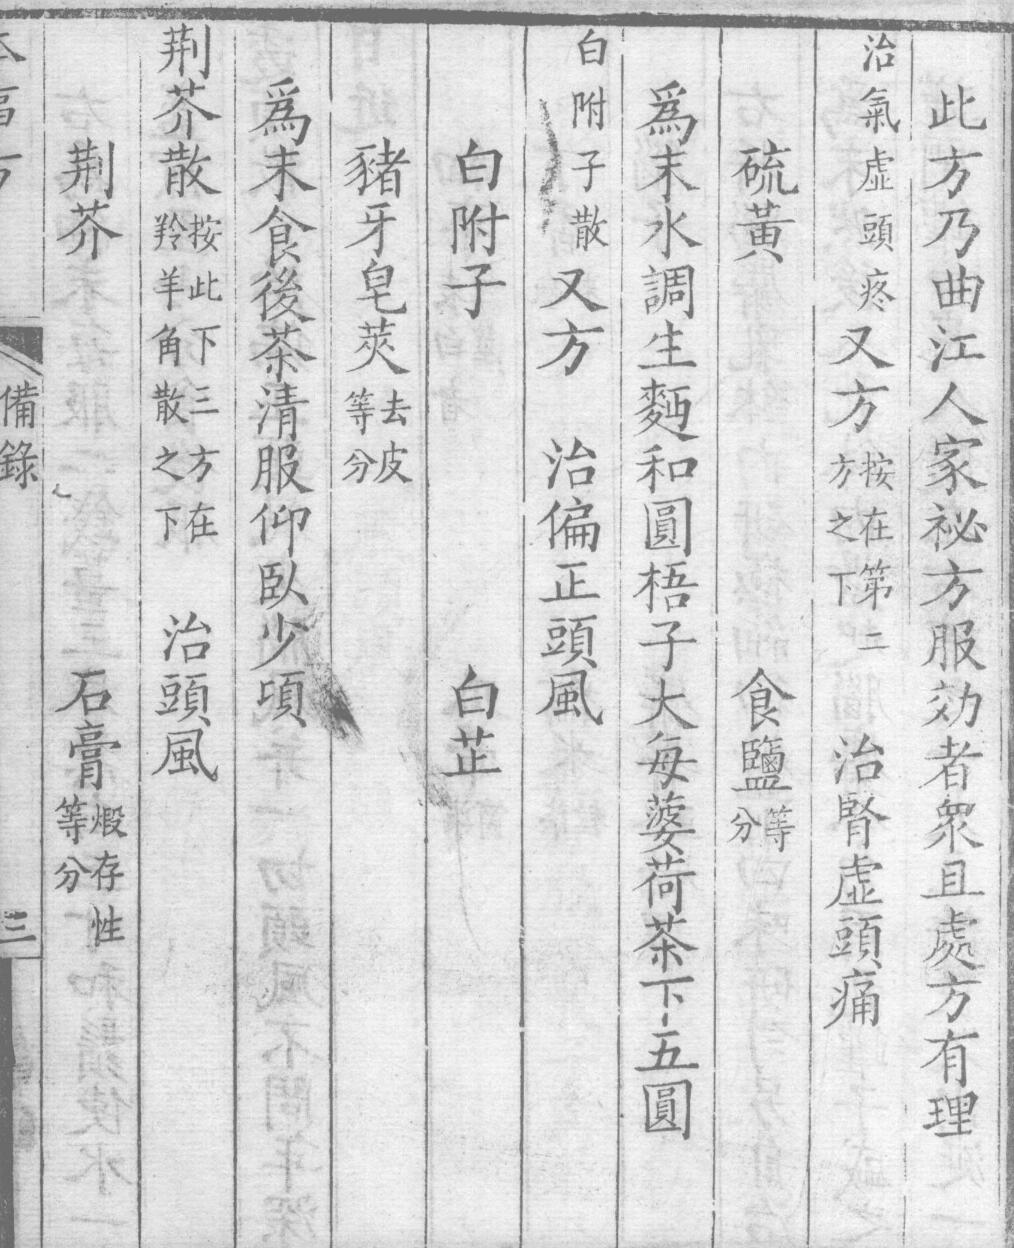 此方乃曲江人家祕方服効者衆且處方有理
治氣虛頭疼又方按在第二方之下 治腎虛頭痛
硫黃 食鹽等分
爲末水調生麪和圓梧子大每薄荷茶下五圓
白附子散又方 治偏正頭風
白附子 白芷
豬牙皂莢去皮等分
爲末食後茶清服仰臥少頃
荆芥散按此下三方在羚羊角散之下 治頭風
荆芥 石膏煅存性等分
備錄 三